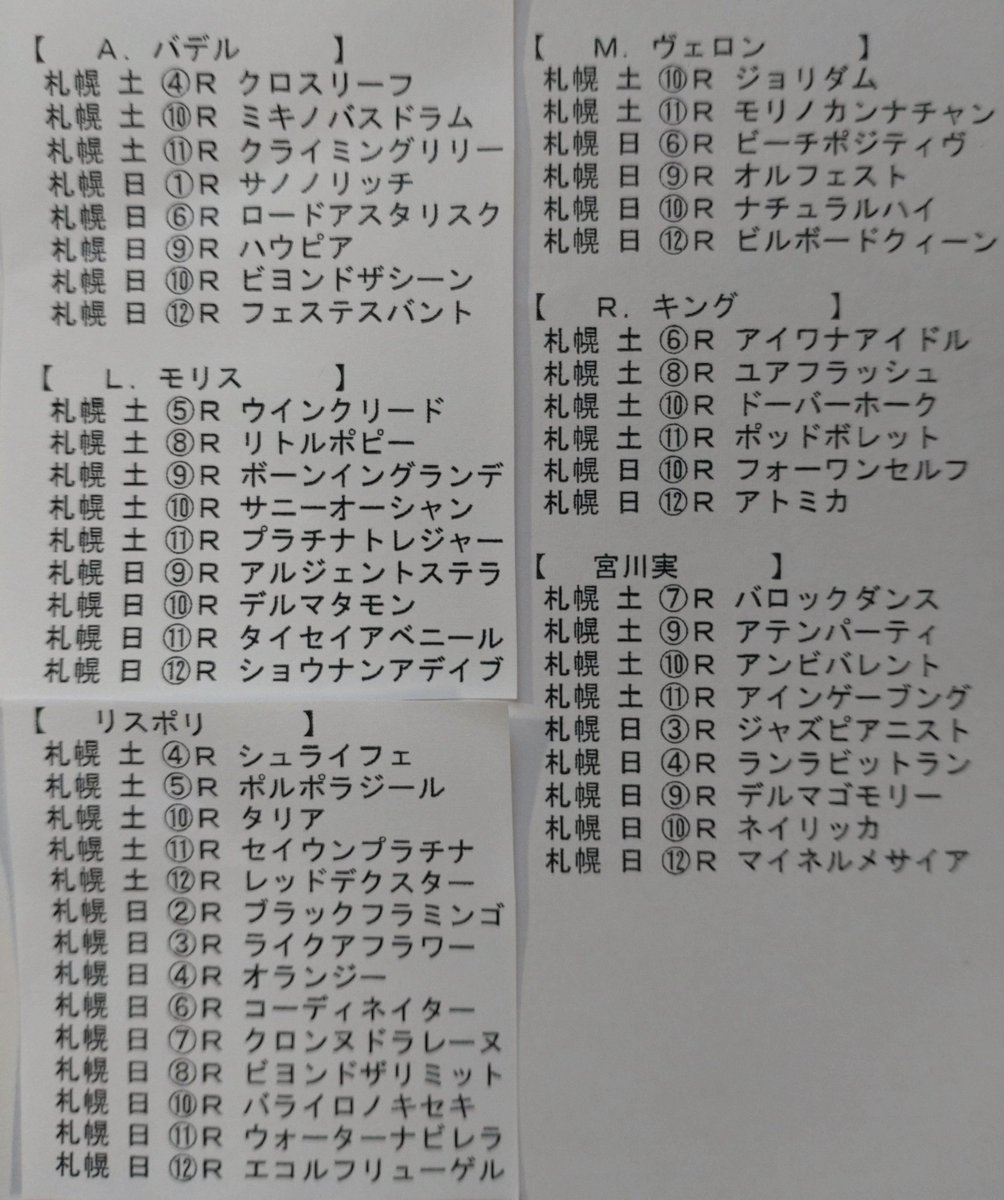 【 A. バデル 】
札幌 土 ④R クロスリーフ
札幌 土 ⑩R ミキノバスドラム
札幌 土 ⑪R クライミングリリー
札幌 日 ①R サノノリッチ
札幌 日 ⑥R ロードアスタリスク
札幌 日 ⑨R ハウピア
札幌 日 ⑩R ビヨンドザシーン
札幌 日 ⑫R フェステスバント
【 L. モリス 】
札幌 土 ⑤R ウインクリード
札幌 土 ⑧R リトルポピー
札幌 土 ⑨R ボーンイングランデ
札幌 土 ⑩R サニーオーシャン
札幌 土 ⑪R プラチナトレジャー
札幌 日 ⑨R アルジェントステラ
札幌 日 ⑩R デルマタモン
札幌 日 ⑪R タイセイアベニール
札幌 日 ⑫R ショウナンアデイブ
【 リスポリ 】
札幌 土 ④R シュライフェ
札幌 土 ⑤R ポルポラジール
札幌 土 ⑩R タリア
札幌 土 ⑪R セイウンプラチナ
札幌 土 ⑫R レッドデクスター
札幌 日 ②R ブラックフラミンゴ
札幌 日 ③R ライクアフラワー
札幌 日 ④R オランジー
札幌 日 ⑥R コーディネイター
札幌 日 ⑦R クロンヌドラレーヌ
札幌 日 ⑧R ビヨンドザリミット
札幌 日 ⑩R バライロノキセキ
札幌 日 ⑪R ウォーターナビレラ
札幌 日 ⑫R エコルフリューゲル
【 M. ヴェロン 】
札幌 土 ⑩R ジョリダム
札幌 土 ⑪R モリノカンナチャン
札幌 日 ⑥R ビーチポジティヴ
札幌 日 ⑨R オルフェスト
札幌 日 ⑩R ナチュラルハイ
札幌 日 ⑫R ビルボードクィーン
【 R. キング 】
札幌 土 ⑥R アイワナアイドル
札幌 土 ⑧R ユアフラッシュ
札幌 土 ⑩R ドーバーホーク
札幌 土 ⑪R ポッドボレット
札幌 日 ⑩R フォーワンセルフ
札幌 日 ⑫R アトミカ
【 宮川実 】
札幌 土 ⑦R バロックダンス
札幌 土 ⑨R アテンパーティ
札幌 土 ⑩R アンビバレント
札幌 土 ⑪R アインゲーブング
札幌 日 ③R ジャズピアニスト
札幌 日 ④R ランラビットラン
札幌 日 ⑨R デルマゴモリー
札幌 日 ⑩R ネイリッカ
札幌 日 ⑫R マイネルメサイア